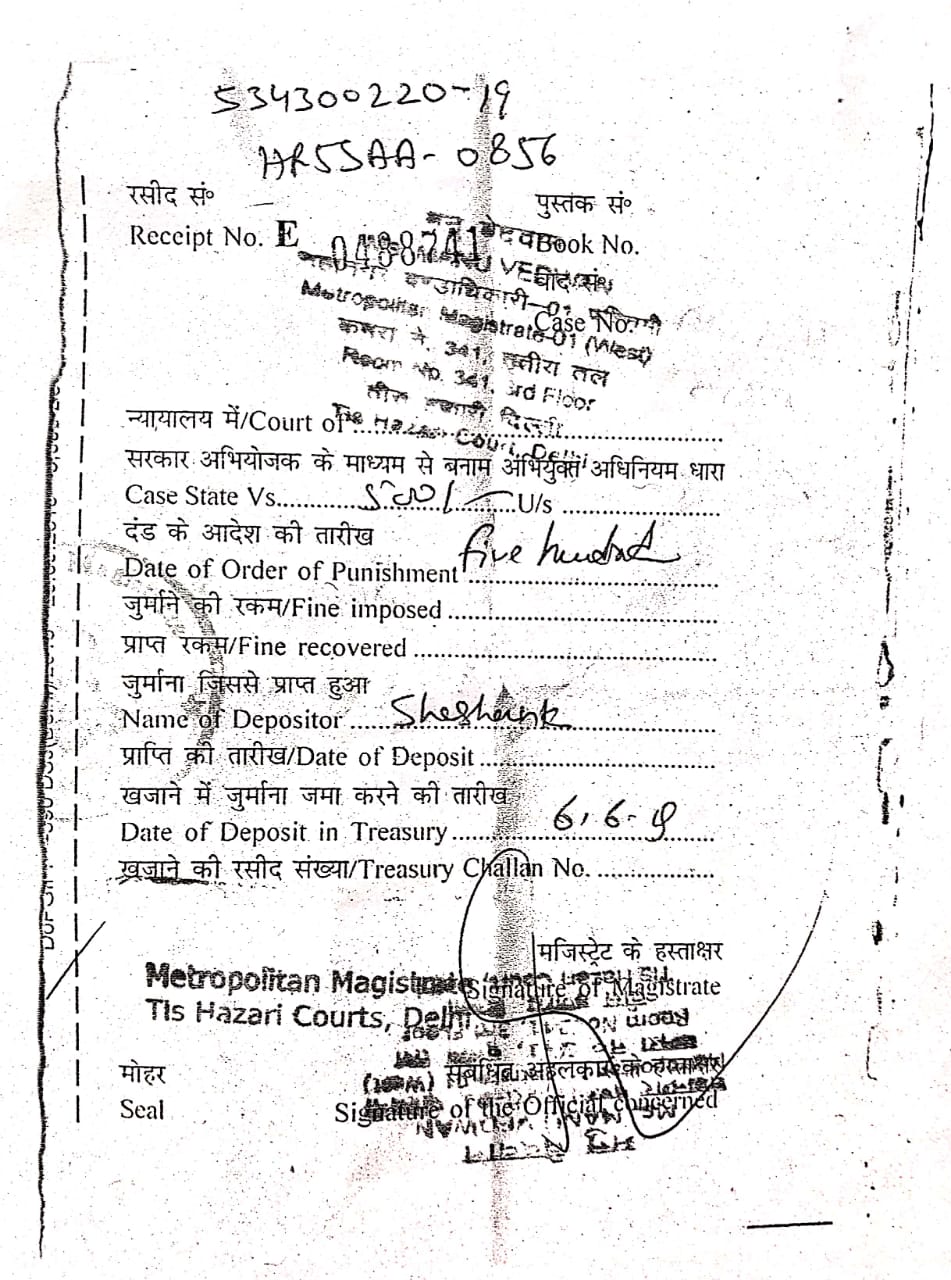 534300220-19
HR55AA-0856
रसीद सं०
पुस्तक सं०
Receipt No. E 0488741
Book No.
वाद सं०
दण्डाधिकारी-01
Case No.
Metropolitan Magistrate-01 (West)
कमरा नं. 341, तृतीय तल
Room No. 341, 3rd Floor
तीस हजारी दिल्ली
Tis Hazari Court, Delhi
न्यायालय में/Court of
सरकार अभियोजक के माध्यम से बनाम अभियुक्त अधिनियम धारा
Case State Vs. 500/- U/s
दंड के आदेश की तारीख
Date of Order of Punishment five hundred
जुर्माने की रकम/Fine imposed
प्राप्त रकम/Fine recovered
जुर्माना जिससे प्राप्त हुआ
Name of Depositor Shashank
प्राप्ति की तारीख/Date of Deposit
खजाने में जुर्माना जमा करने की तारीख
Date of Deposit in Treasury 6.6-19
खजाने की रसीद संख्या/Treasury Challan No.
मजिस्ट्रेट के हस्ताक्षर
Signature of Magistrate
Metropolitan Magistrate
Tis Hazari Courts, Delhi
संबंधित अहलकार के हस्ताक्षर
मोहर
Seal
Signature of the Official concerned